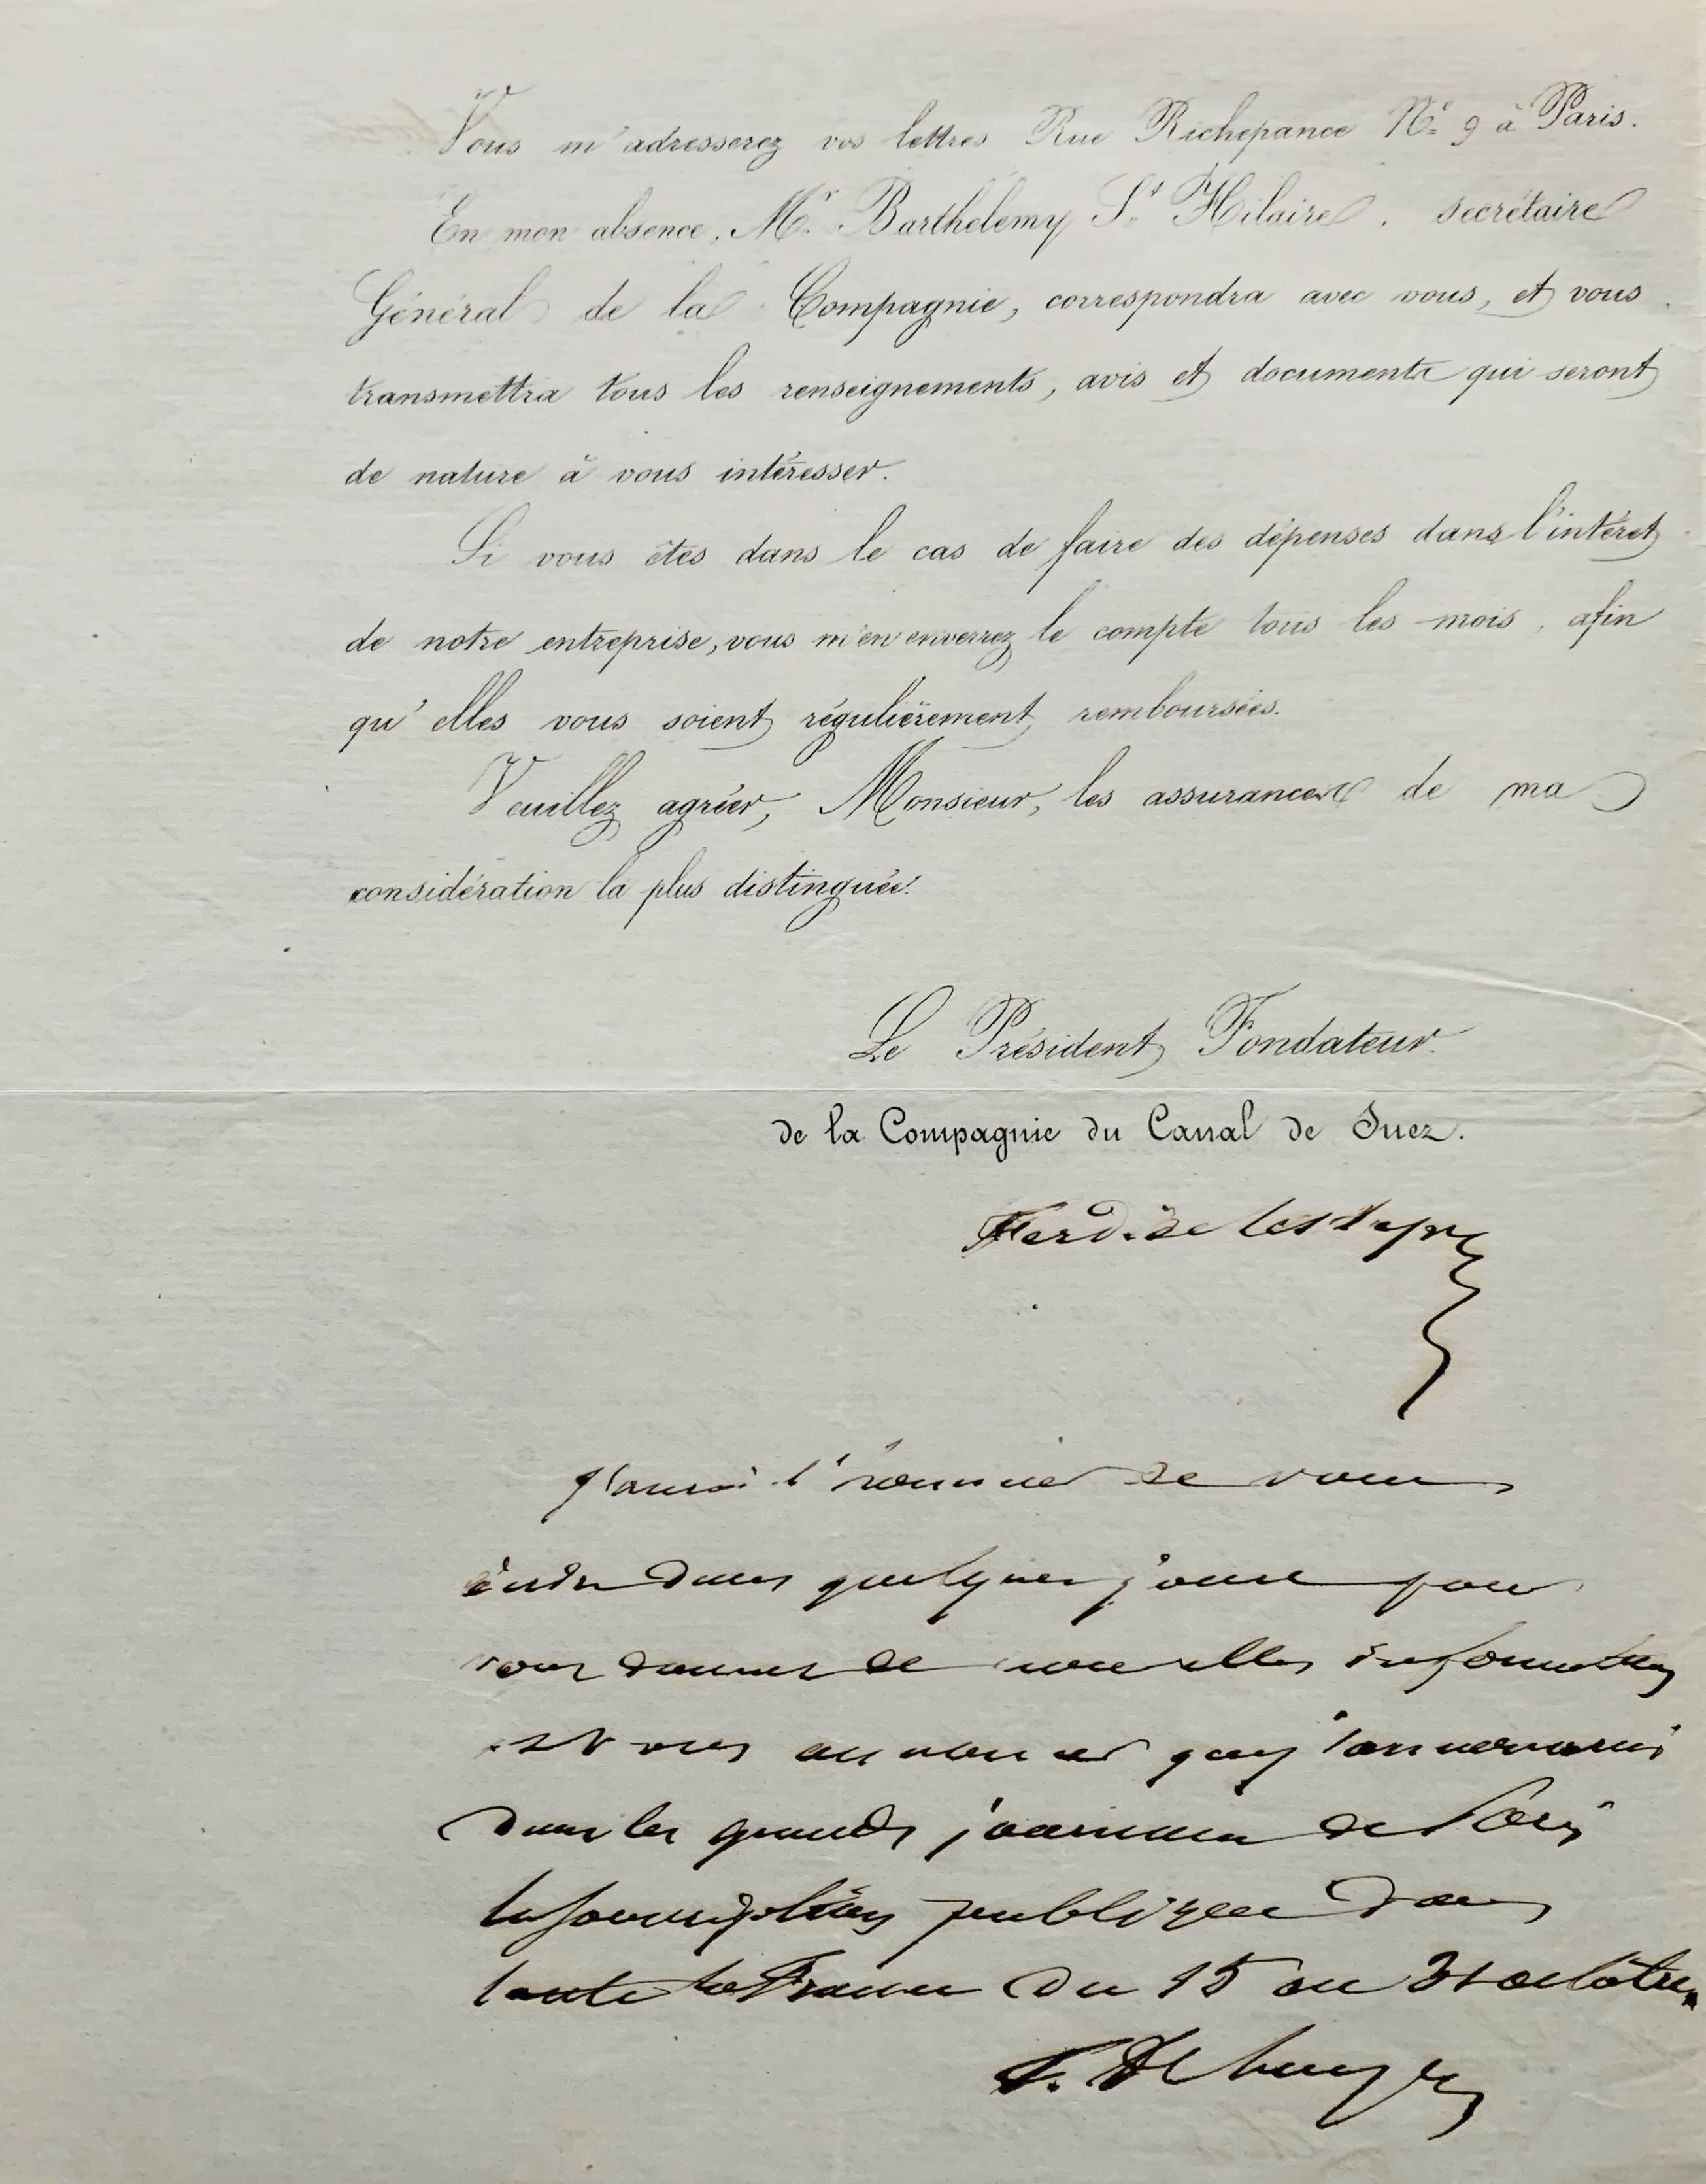 Vous m'adresserez vos lettres Rue Richepance N.° 9 à Paris.
En mon absence, M.r Barthélemy S.t Hilaire, secrétaire
Général de la Compagnie, correspondra avec vous, et vous
transmettra tous les renseignements, avis et documents qui seront
de nature à vous intéresser.
Si vous êtes dans le cas de faire des dépenses dans l'intéret
de notre entreprise, vous m'en enverrez le compte tous les mois, afin
qu'elles vous soient régulièrement remboursées.
Veuillez agréer, Monsieur, les assurances de ma
considération la plus distinguée.
Le Président Fondateur
de la Compagnie du Canal de Suez.
Ferd. de Lesseps
J'aurai l'honneur de vous
écrire dans quelques jours pour
vous donner de nouvelles informations
et vous annoncer que j'annoncerai
dans les grands journaux de Paris
la souscription publique dans
toute la France du 15 au 31 octobre.
F. de Lesseps